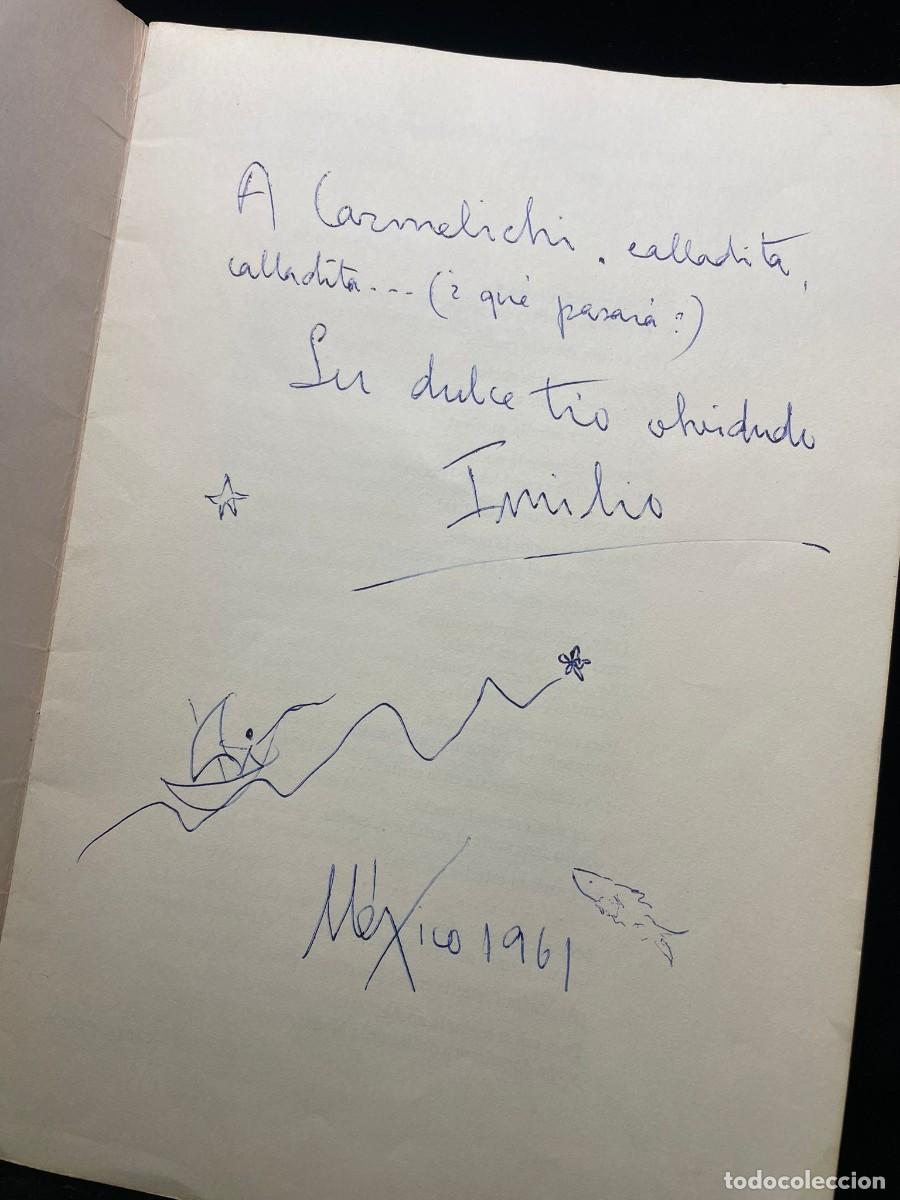 A Carmelichi. calladita,
calladita... (¿qué pasará?)
Su dulce tío olvidado
Emilio
México 1961
todocoleccion